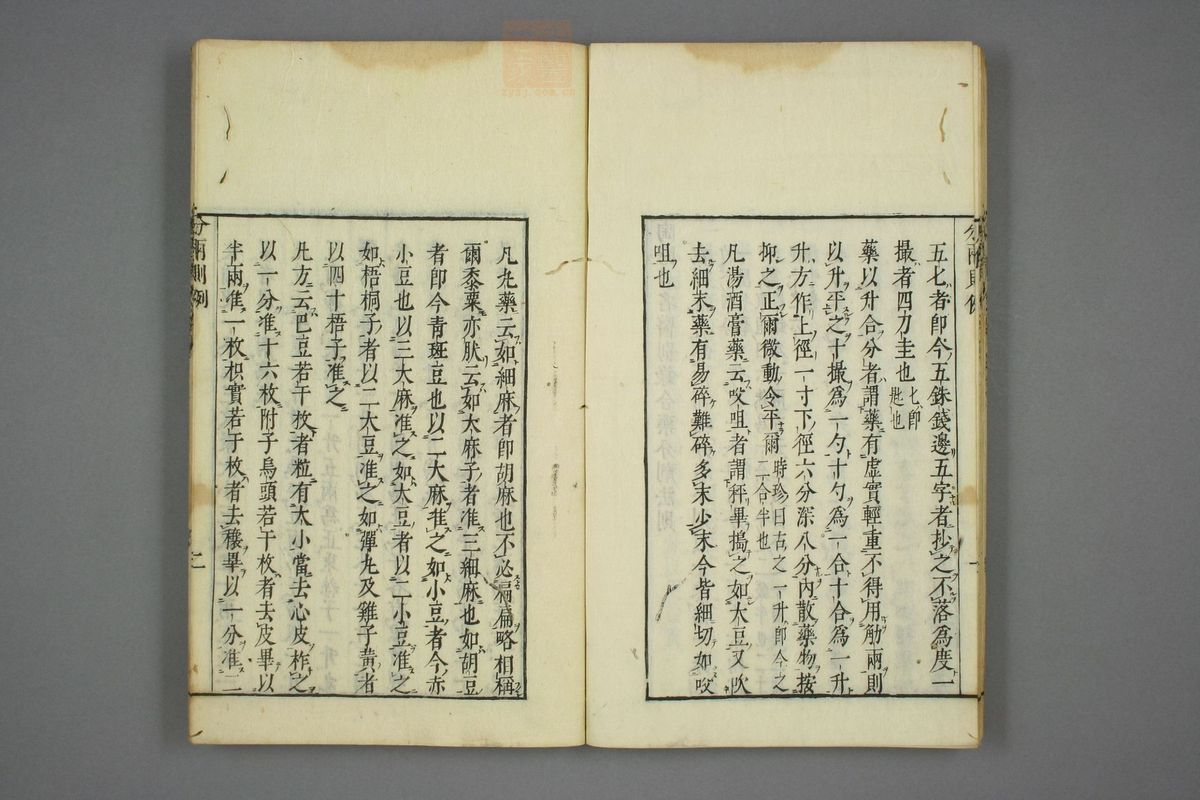 分兩則例
五匕者即今五銖錢邊五字者抄之不落爲度一
撮者四刀圭也匕即匙也
藥以升合分者謂藥有虛實輕重不得用觔兩則
以升平之十撮爲一勺十勺爲一合十合爲一升
升方作上徑一寸下徑六分深八分內散藥物按
抑之正爾微動令平爾時珍曰古之一升即今之二合半也
凡湯酒膏藥云㕮咀者謂秤畢搗之如大豆又吹
去細末藥有易碎難碎多末少末今皆細切如㕮
咀也
凡丸藥云如細麻者即胡麻也不必扁扁略相稱
爾黍粟亦肰云如大麻子者准三細麻也如胡豆
者即今青斑豆也以二大麻准之如小豆者今赤
小豆也以三大麻准之如大豆者以二小豆准之
如梧桐子者以二大豆准之如彈丸及雞子黄者
以四十梧子准之
凡方云巴豆若干枚者粒有大小當去心皮柞之
以一分准十六枚附子烏頭若干枚者去皮畢以
半兩准一枚枳實若干枚者去穰畢以一分准二
分兩則例
二
zysj.com.cn